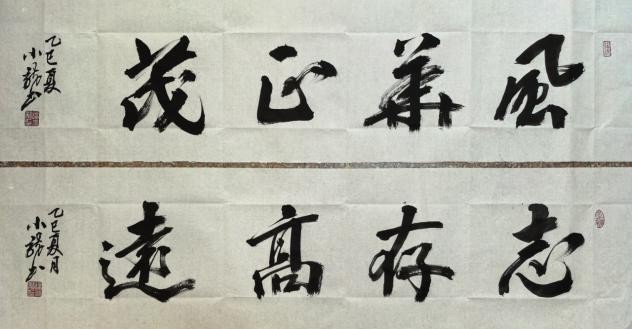 風華正茂
乙巳夏
小龍书
志存高遠
乙巳夏月
小龍书